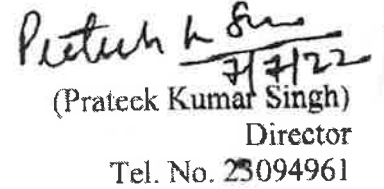 Prateek K Sin
7/7/22
(Prateek Kumar Singh)
Director
Tel. No. 23094961